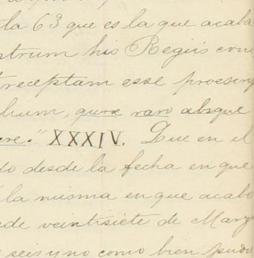 la 63 que es la que acaba
strum his Regiis con
receptam esse
quæ raro absque
ere." XXXIV. Que en el
do desde la fecha en que
la misma en que acabo
de veintisiete de Marz
seis uno como bien pudo